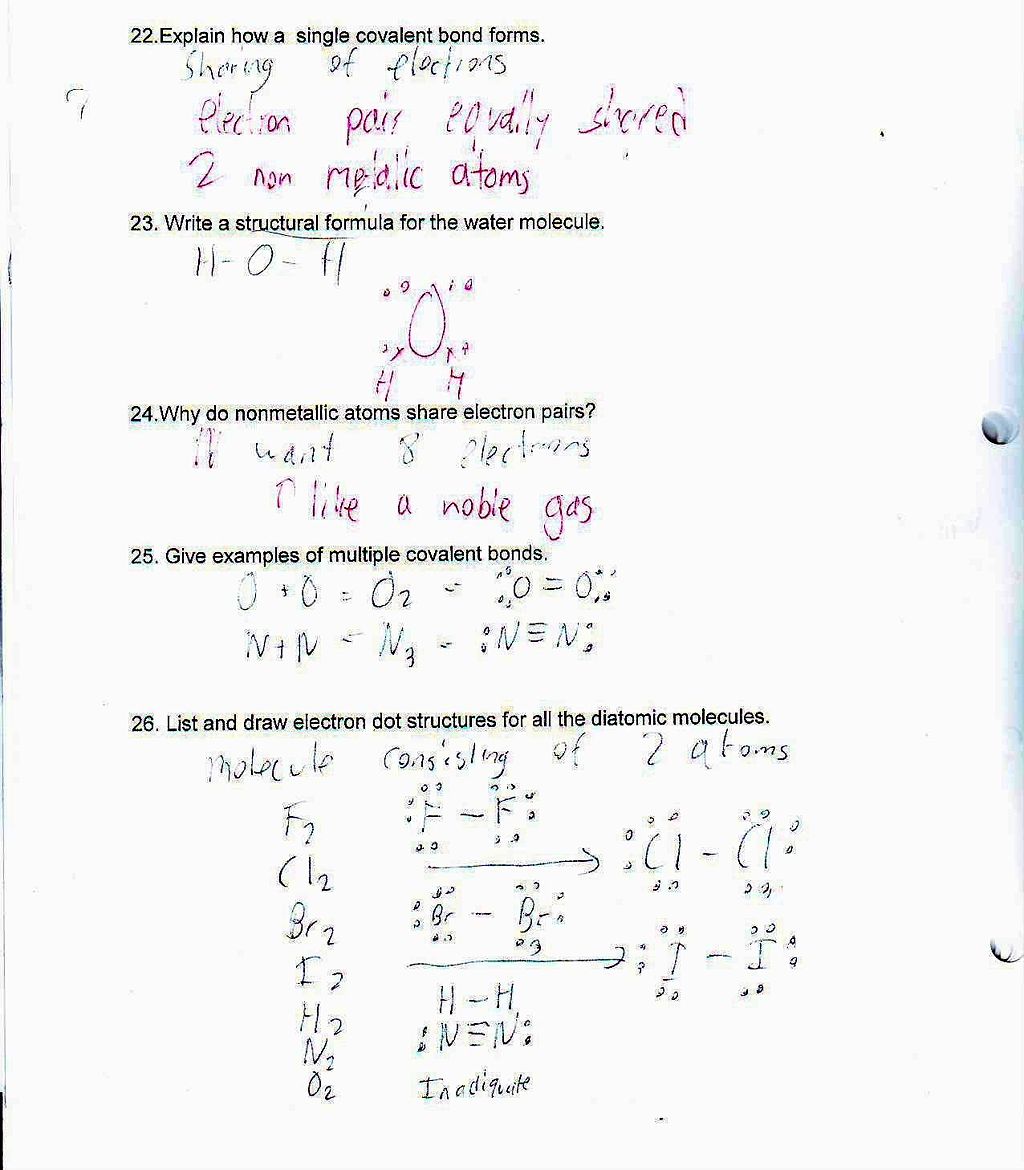 22.Explain how a single covalent bond forms.
Sharing of electrons
?
electron pair equally shared
2 non metalic atoms
23. Write a structural formula for the water molecule.
H-O-H
O
H H
24.Why do nonmetallic atoms share electron pairs?
want 8 electrons
↑ like a noble gas
25. Give examples of multiple covalent bonds.
O + O = O2 - :O=O:
N+N = N3 - :N≡N:
26. List and draw electron dot structures for all the diatomic molecules.
Molecule consisting of 2 atoms
F2 :F-F:
Cl2 → :Cl-Cl:
Br2 :Br-Br:
I2 → :I-I:
H2 H-H
N2 :N≡N:
O2 Inadiquite